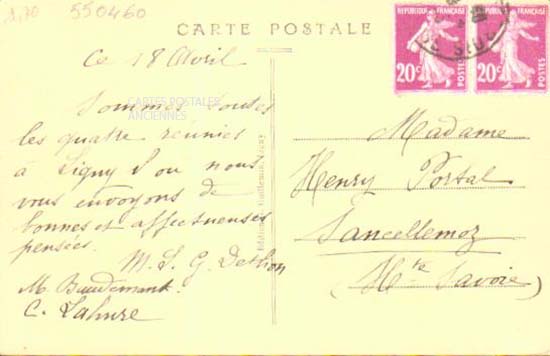 1,70
550460
CARTE POSTALE
Ce 18 Avril
Sommes toutes
CARTES POSTALES
ANCIENNES
les quatre réunies
à Ligny d'où nous
vous envoyons de
bonnes et affectueuses
pensées.
M. L. G. Dethon
M. Baudemant.
C. Lahure
REPUBLIQUE FRANÇAISE
20c
POSTES
REPUBLIQUE FRANÇAISE
20c
POSTES
Madame
Henry Portal
Sancellemoz
(Hte Savoie)